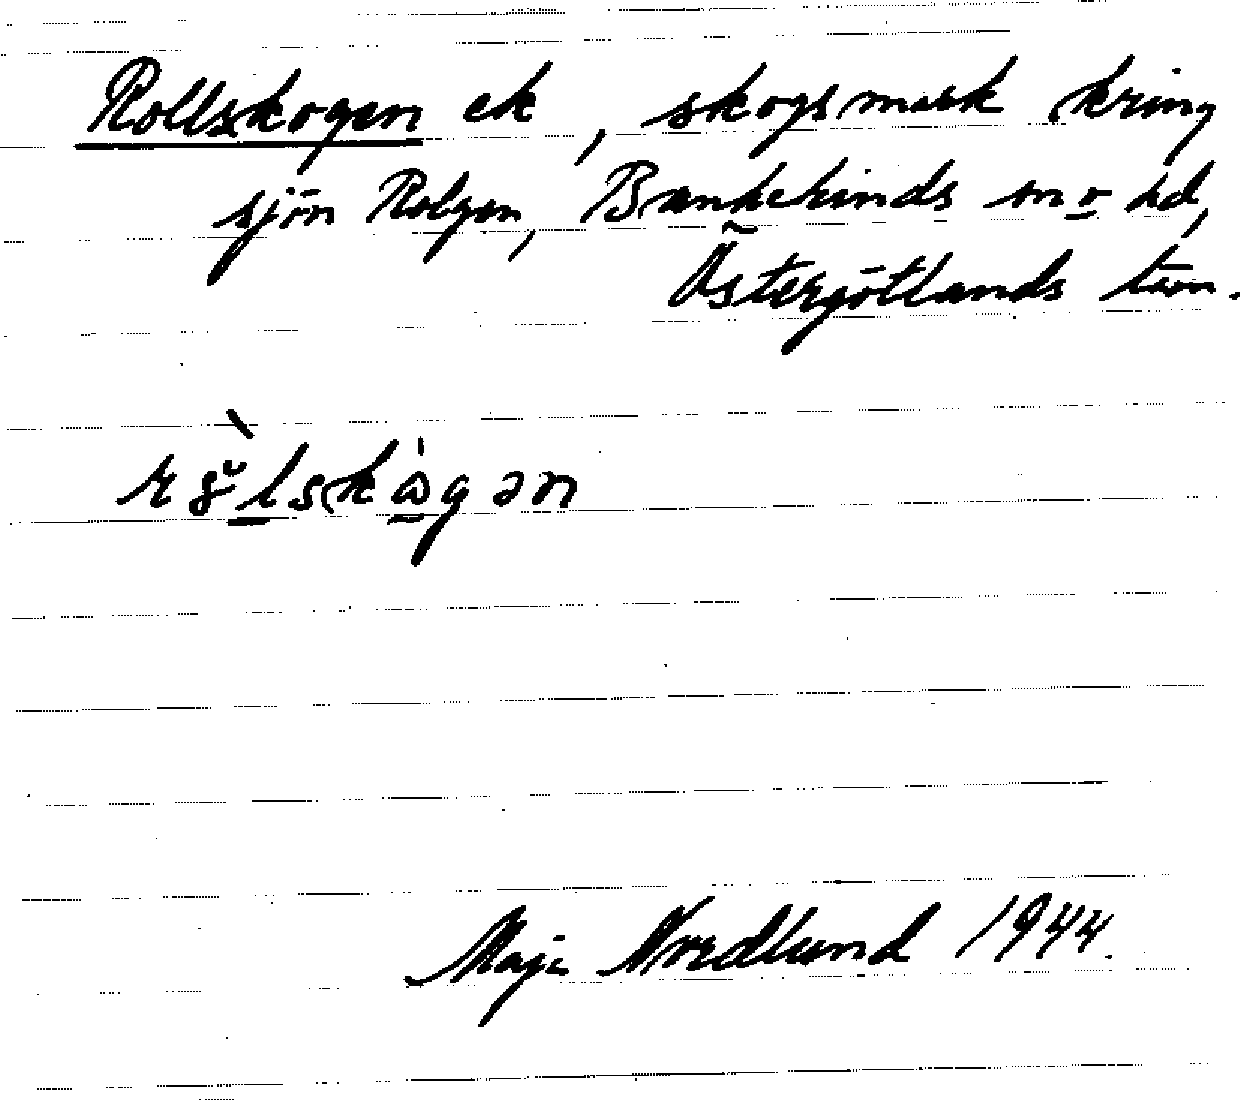 Rollskogen ek, skogsmark kring
sjön Rolgen, Bankekinds sn o hd,
Östergötlands län.
Maja Nordlund 1944.